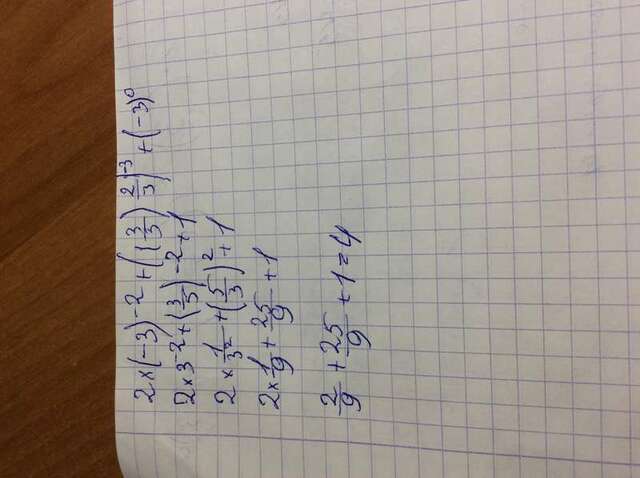 2×(-3)^-2 + ((3/5)^2/3)^-3 + (-3)^0
2×3^-2 + (3/5)^-2 + 1
2 × 1/3^2 + (5/3)^2 + 1
2× 1/9 + 25/9 + 1
2/9 + 25/9 + 1 = 4